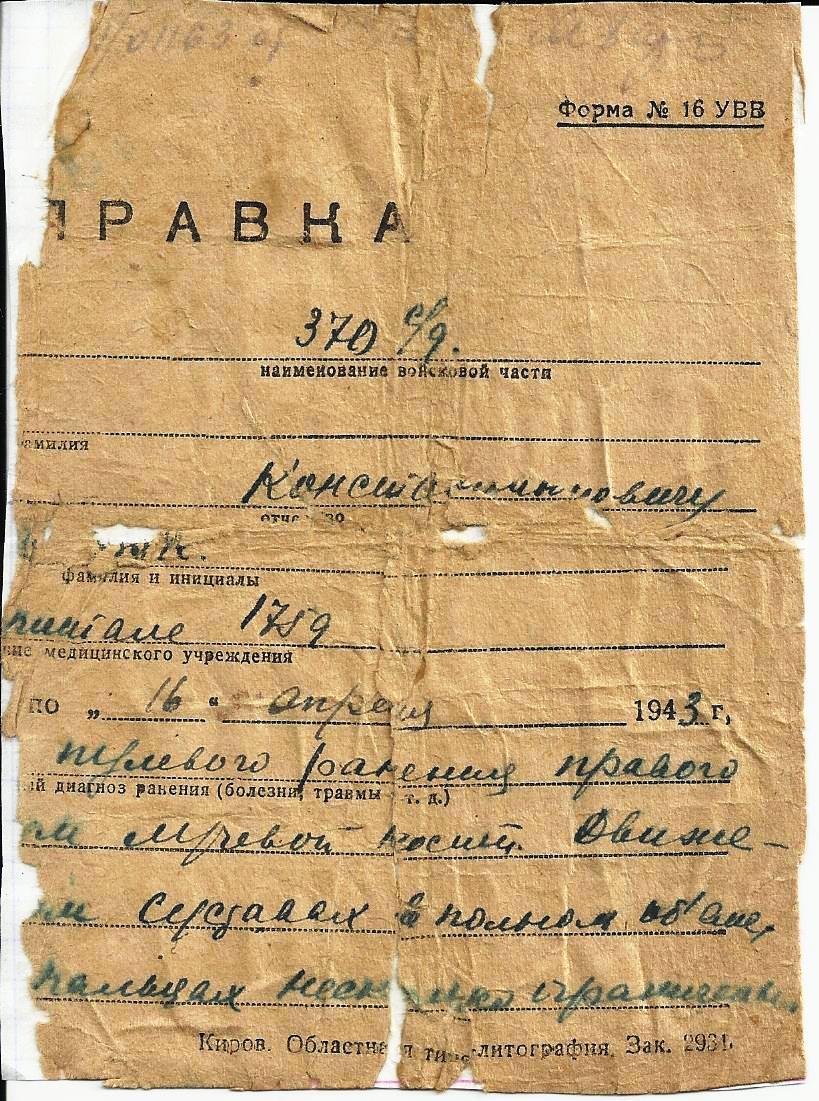 Форма № 16 УВВ
ПРАВКА
370 с/д.
наименование войсковой части
амилия
Константиновичу
отчество
фамилия и инициалы
питале 1759
ние медицинского учреждения
по „ 16 “ апреля 1943 г,
пулевого ранения правого
ый диагноз ранения (болезни, травмы т. д.)
ом лучевой кости. Движе-
суставах в полном об'еме,
пальцах несколько ограничены
Киров. Областная типолитография. Зак. 2931